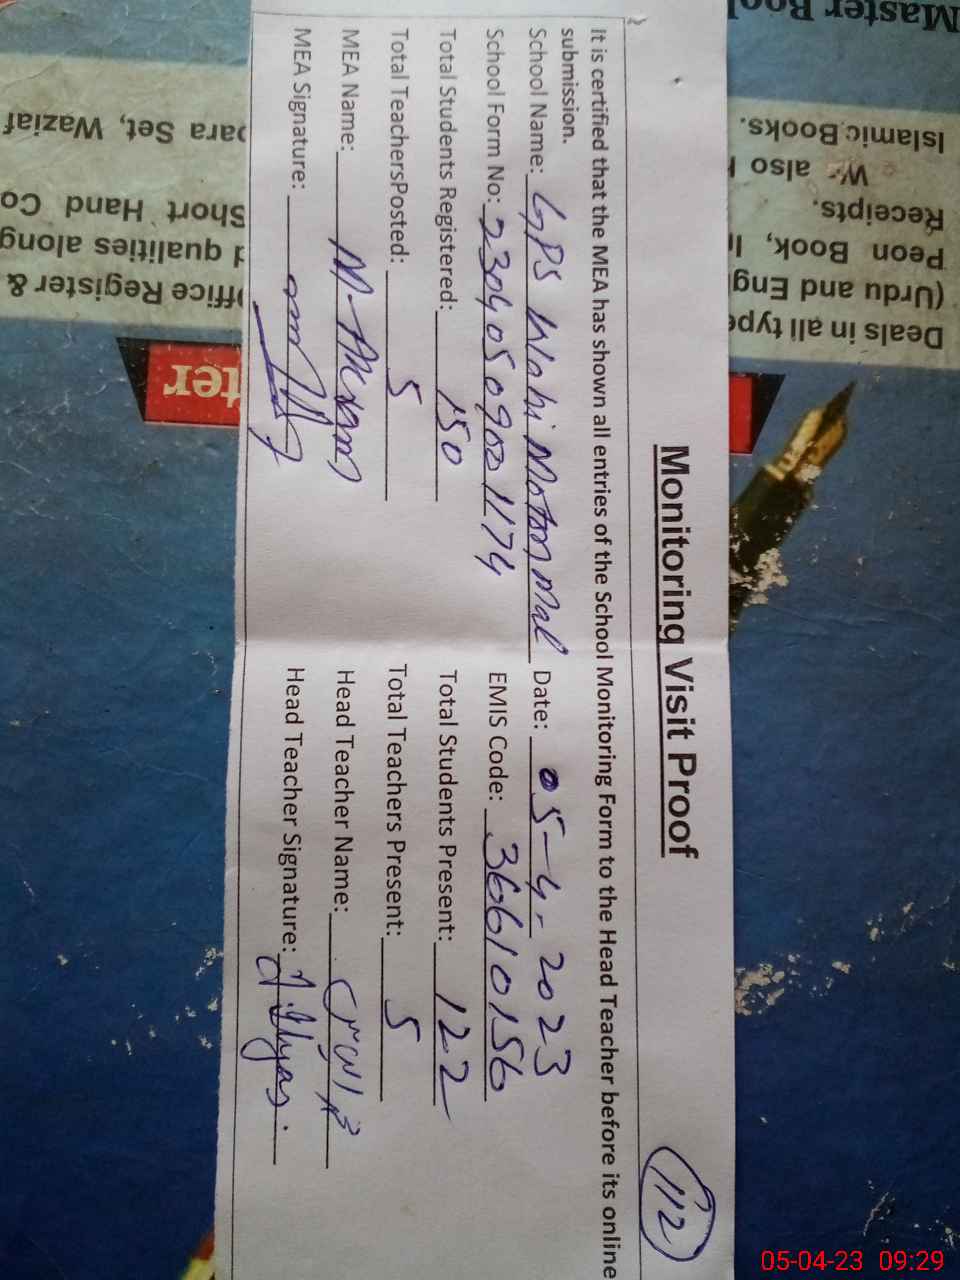 Monitoring Visit Proof
112
It is certified that the MEA has shown all entries of the School Monitoring Form to the Head Teacher before its online
submission.
School Name: GPS Wahi Motan Mal Date: 05-4-2023
School Form No: 2304050900 1174 EMIS Code: 36610156
Total Students Registered: 150 Total Students Present: 122
Total TeachersPosted: 5 Total Teachers Present: 5
MEA Name: M. Akram Head Teacher Name:
MEA Signature: Head Teacher Signature: Ilyas.
Master
Deals in all type
(Urdu and Eng
Peon Book,
Receipts.
also
Islamic Books.
ter
ffice Register &
d qualities along
Short Hand Co
para Set, Waziaf
05-04-23 09:29